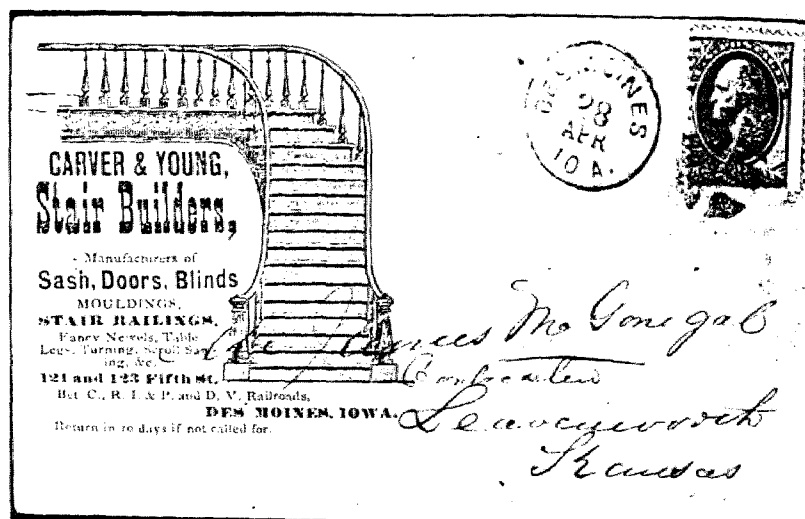 CARVER & YOUNG,
Stair Builders,
Manufacturers of
Sash, Doors, Blinds
MOULDINGS,
STAIR RAILINGS,
Fancy Newels, Table
Legs, Turning, Scroll Saw-
ing, &c.
121 and 123 Fifth St.
Bet. C., R. I. & P. and D. V. Railroads,
DES MOINES, IOWA.
Return in 10 days if not called for.
DES MOINES
28
APR
IOA.
James McGonegal
Contractor
Leavenworth
Kansas